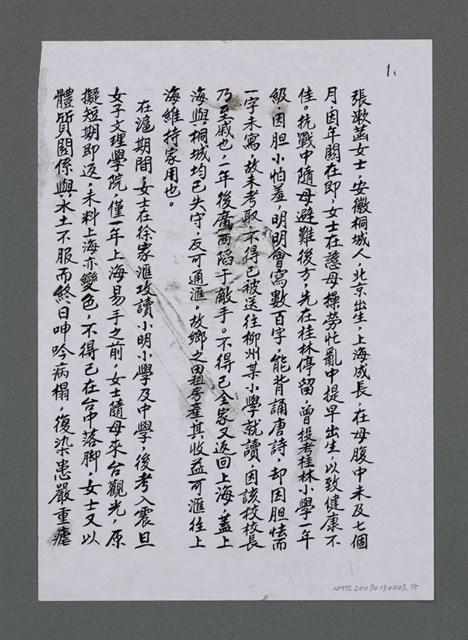 1、
張漱菡女士，安徽桐城人，北京出生，上海成長，在母腹中未及七個
月，因年關在即，女士在慈母操勞忙亂中提早出生，以致健康不
佳。抗戰中隨母避難後方，先在桂林停留，曾投考桂林小學一年
級，因胆小怕羞，明明會寫數百字，能背誦唐詩，却因胆怯而
一字未寫，故未考取，不得已被送往柳州某小學就讀，因該校校長
乃至戚也，二年後廣西陷于敵手。不得已全家又返回上海，蓋上
海與桐城均已失守，反可通滙，故鄉之田租房產其收益可滙往上
海維持家用也。
在滬期間女士在徐家滙攻讀小明小學及中學，後考入震旦
女子文理學院，僅一年上海易手之前，女士隨母來台觀光，原
擬短期即返，未料上海亦變色，不得已在台中落脚，女士又以
體質關係與水土不服而終日呻吟病榻，復染患嚴重瘧
NMTL20070130003.45